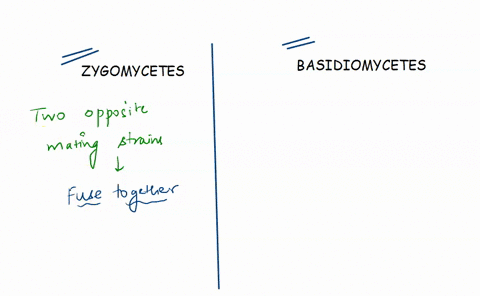 ZYGOMYCETES
Two opposite
mating strains
↓
Fuse together
BASIDIOMYCETES